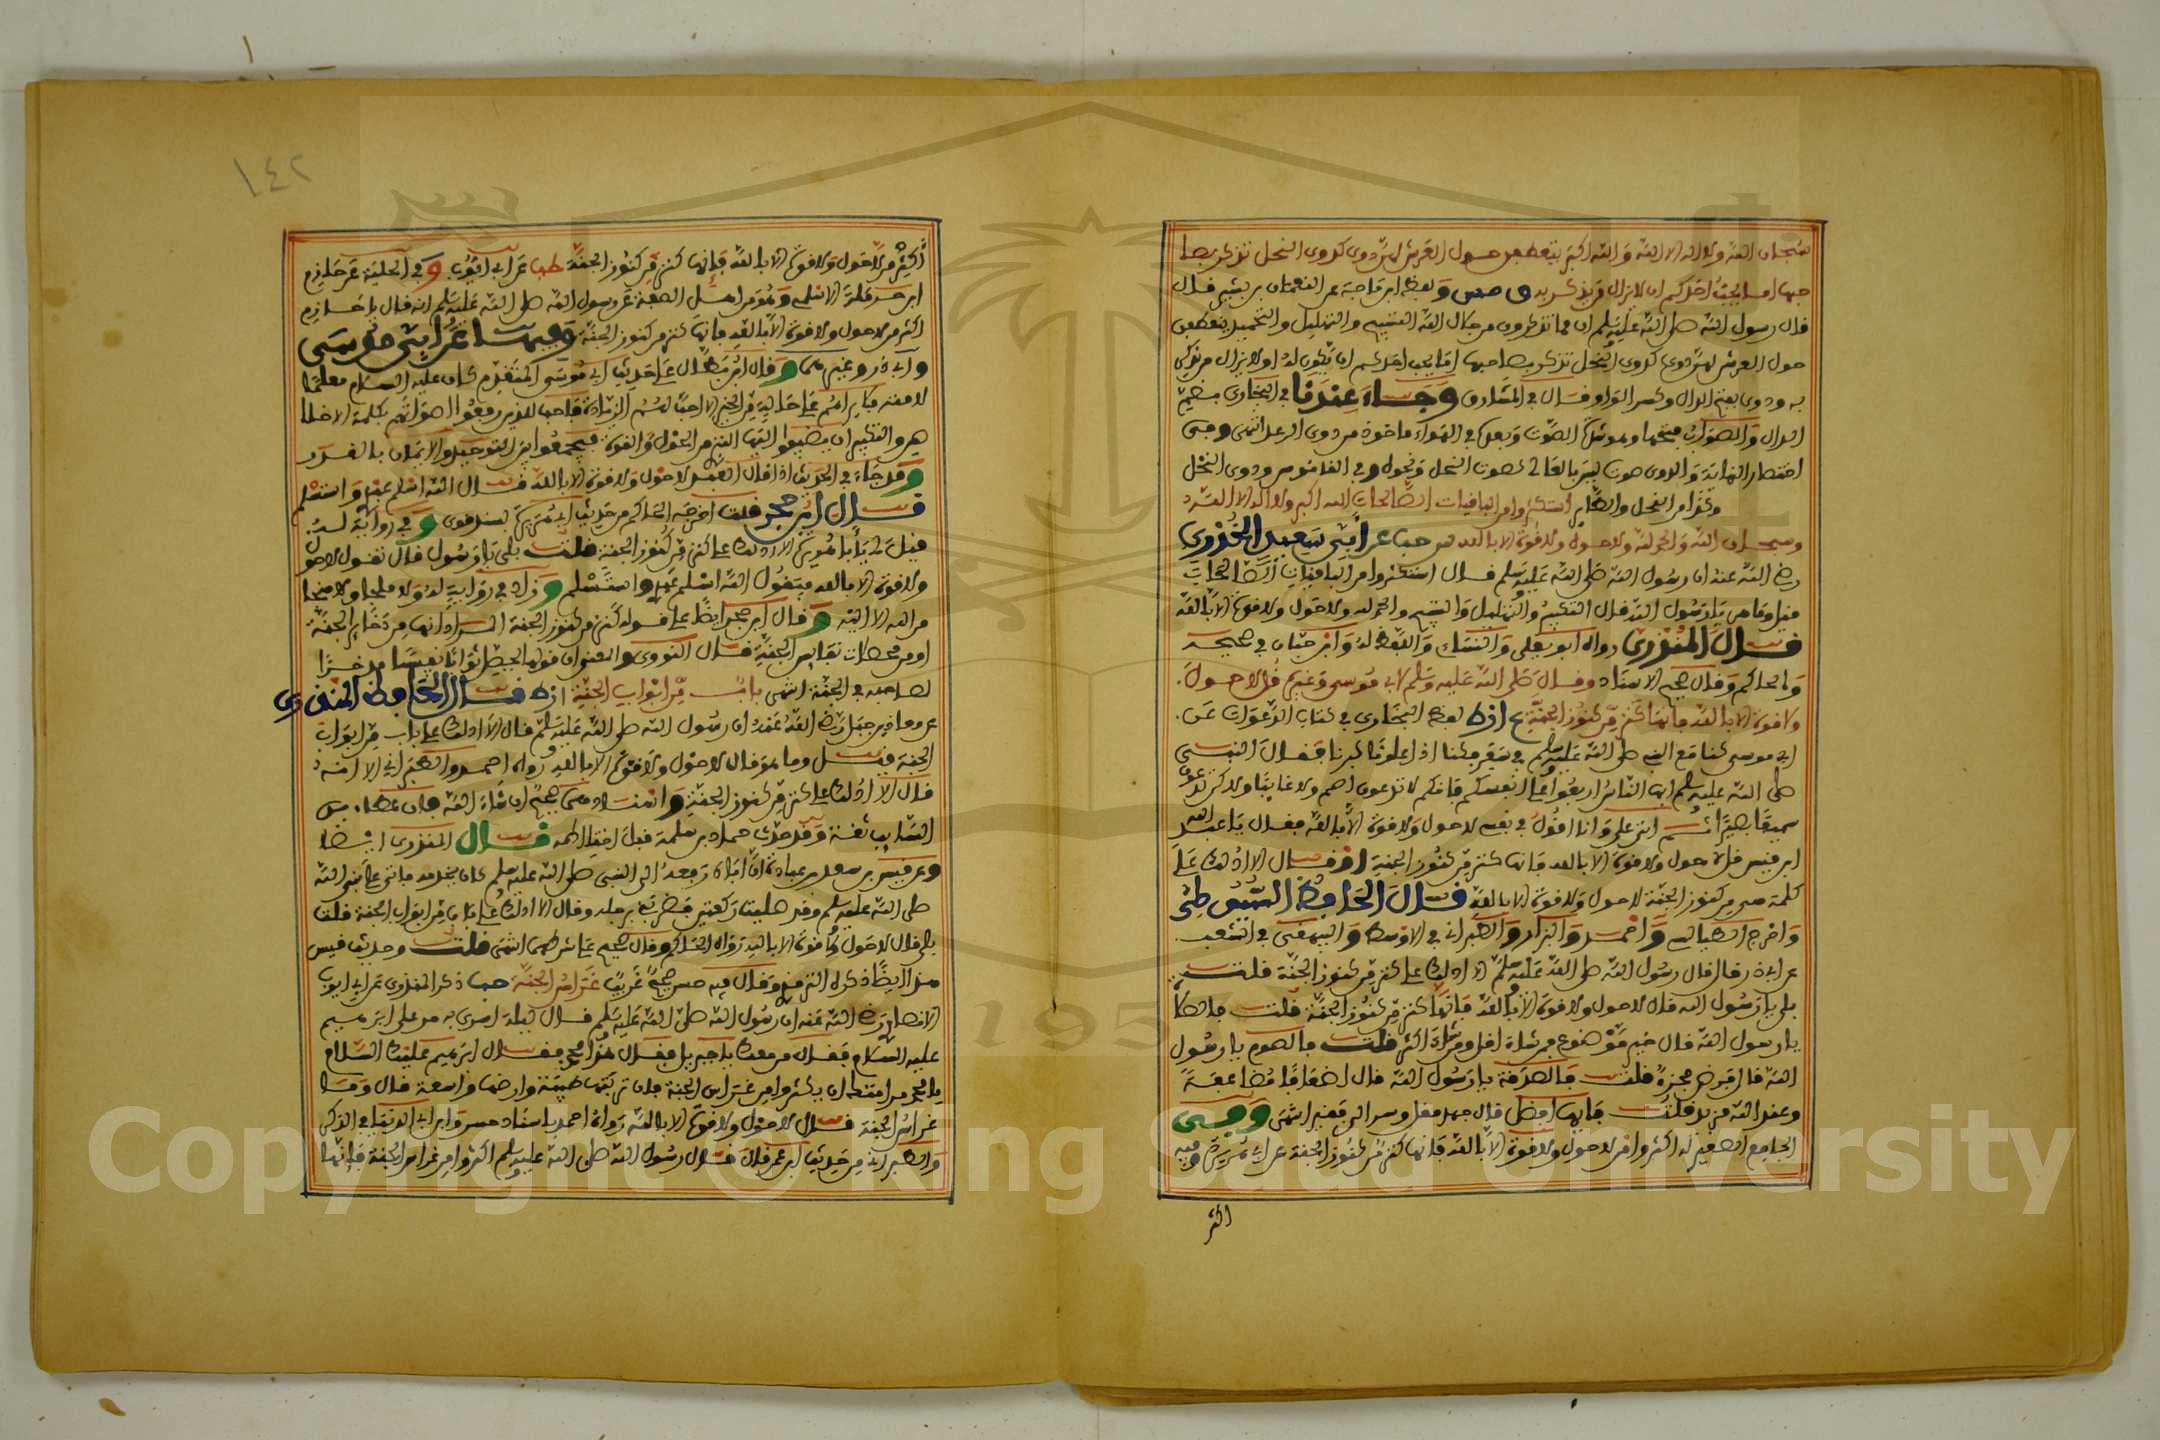 سبحان الله ولا اله الا الله والله اكبر يتعطفن حول العرش لهن دوي كدوي النحل تذكر بصا
حبها اما يحب احدكم ان لا يزال من يذكر به ق مص ولفظ ابن ماجة عن النعمان بن بشير قال
قال رسول الله صلى الله عليه وسلم ان مما تذكرون من جلال الله التسبيح والتهليل والتحميد ينعطفن
حول العرش لهن دوي كدوي النحل تذكر بصاحبها اما يحب احدكم ان يكون له او لا يزال من يذكر
به ودوي بفتح الدال وكسر الواو وقال في المشارق وجاء عندنا في البخاري بضم
الدال والصواب فتحها وهو شدة الصوت وبعده في الهواء ماخوذ من دوي الرعد انتهى وفي
اختصار النهاية والدوي صوت ليس بالعالي كصوت النحل ونحوه وفي القاموس ودوي النحل
استكثروا من الباقيات الصالحات الله اكبر ولا اله الا الله
وسبحان الله والحمد لله ولا حول ولا قوة الا بالله عن أبي سعيد الخدري
رضي الله عنه ان رسول الله صلى الله عليه وسلم قال استكثروا من الباقيات الصالحات
قيل وما هن يا رسول الله قال التكبير والتهليل والتسبيح والحمد لله ولا حول ولا قوة الا بالله
قال المنذري رواه ابو يعلى والنساء واللفظ له وابن حبان في صحيحه
والحاكم وقال صحيح الاسناد وقال صلى الله عليه وسلم لابي موسى وغيره قل لا حول
ولا قوة الا بالله فانها كنز من كنوز الجنة ع لفظ البخاري في كتاب الدعوات عن
ابي موسى كنا مع النبي صلى الله عليه وسلم في سفر فكنا اذا علونا كبرنا فقال النبي
صلى الله عليه وسلم ايها الناس اربعوا على انفسكم فانكم لا تدعون اصم ولا غايبا ولاكن تدعون
سميعا بصيرا ثم اتى علي وانا اقول في نفسي لا حول ولا قوة الا بالله فقال يا عبد الله
ابن قيس قل لا حول ولا قوة الا بالله فانها كنز من كنوز الجنة او قال الا ادلك على
كلمة هي من كنوز الجنة لا حول ولا قوة الا بالله قال الحافظ السيوطي
واخرج الطيالسي واحمد والبزار والطبراني في الاوسط والبيهقي في الشعب
عن ابي ذر قال قال رسول الله صلى الله عليه وسلم الا ادلك على كنز من كنوز الجنة قلت
بلى يا رسول الله قال لا حول ولا قوة الا بالله فانها كنز من كنوز الجنة قلت فالصلاة
يا رسول الله قال خير موضوع فمن شاء اقل ومن شاء اكثر قلت فالصوم يا رسول
الله قال فرض مجزئ قلت فالصدقة يا رسول الله قال اضعافا مضاعفة
وعند الله مزيد قلت فايها افضل قال جهد مقل وسر الى فقير انتهى وفي
الجامع الصغير له اكثروا من لا حول ولا قوة الا بالله فانها كنز من كنوز الجنة عن ابي هريرة وفيه
اكثر
١٤٢
أكثر من لا حول ولا قوة الا بالله فانها كنز من كنوز الجنة طب عن ابي ايوب وفي الحلية عن حازم
ابن حرملة الاسلمي وهو من اهل الصفة عن رسول الله صلى الله عليه وسلم انه قال يا حازم
اكثر من لا حول ولا قوة الا بالله فانها كنز من كنوز الجنة وفيها عن ابي موسى
وابي ذر وغيرهما وقال ابن بطال على حديث ابي موسى المتقدم كان عليه السلام معلما
لامته فلا يراهم على حالة من الخير الا احب لهم الزيادة فاحب للذين رفعوا اصواتهم بكلمة الاخلا
ص والتكبير ان يضيفوا اليها التبري من الحول والقوة فيجمعوا بين التوحيد والايمان بالقدر
وقد جاء في الحديث اذا قال العبد لا حول ولا قوة الا بالله قال الله اسلم عبدي واستسلم
قال ابن حجر قلت اخرجه الحاكم من حديث ابي هريرة بسند قوي وفي رواية له
قيل لي يا ابا هريرة الا ادلك على كنز من كنوز الجنة قلت بلى يا رسول قال تقول لا حول
ولا قوة الا بالله فيقول الله اسلم عبدي واستسلم وزاد في رواية له ولا ملجا ولا منجا
من الله الا اليه وقال ابن حجر ايضا على قوله كنز من كنوز الجنة المراد انها من ذخاير الجنة
او من محصلات نفايس الجنة قال النووي والمعنى ان قولها يحصل ثوابا نفيسا مدخرا
لصاحبه في الجنة انتهى باب من ابواب الجنة قال الحافظ المنذري
عن معاذ بن جبل رضي الله عنه ان رسول الله صلى الله عليه وسلم قال الا ادلك على باب من ابواب
الجنة قيل وما هو قال لا حول ولا قوة الا بالله رواه احمد والطبراني الا انه
قال الا ادلك على كنز من كنوز الجنة واسناده صحيح ان شاء الله فان عطاء بن
السايب ثقة وقد حدث عنه حماد بن سلمة قبل اختلاطه قال المنذري ايضا
وعن قيس بن سعد بن عبادة ان اباه دفعه الى النبي صلى الله عليه وسلم كان يخدمه فاتى علي نبي الله
صلى الله عليه وسلم وقد صليت ركعتين فضربني برجله وقال الا ادلك على باب من ابواب الجنة قلت
بلى قال لا حول ولا قوة الا بالله رواه الحاكم وقال صحيح على شرطهما انتهى قلت وحديث قيس
هذا ايضا ذكره الترمذي وقال فيه حسن صحيح غريب غراس الجنة حب ذكر المنذري عن ابي ايوب
الانصاري رضي الله عنه ان رسول الله صلى الله عليه وسلم قال ليلة اسري به مر على ابرهيم
عليه السلام فقال من معك يا جبريل فقال هذا محمد فقال ابرهيم عليك السلام
يا محمد مر امتك ان يكثروا من غراس الجنة فان تربتها طيبة وارضها واسعة قال وما
غراس الجنة قال لا حول ولا قوة الا بالله رواه احمد باسناد حسن وابن ابي الدنيا في الذكر
والطبراني من حديث ابن عمر قال قال رسول الله صلى الله عليه وسلم اكثروا من غراس الجنة فانها
Copyright © King Saud University